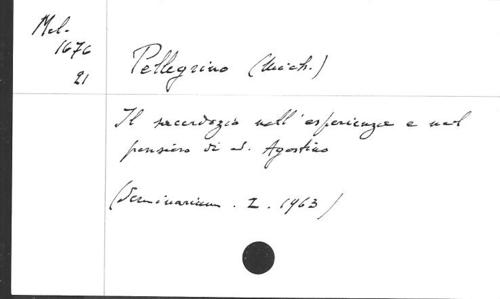 Mel.
1676
21
Pellegrino (Mich.)
Il sacerdozio nell'esperienza e nel
pensiero di s. Agostino
(Seminarium. I. 1963)